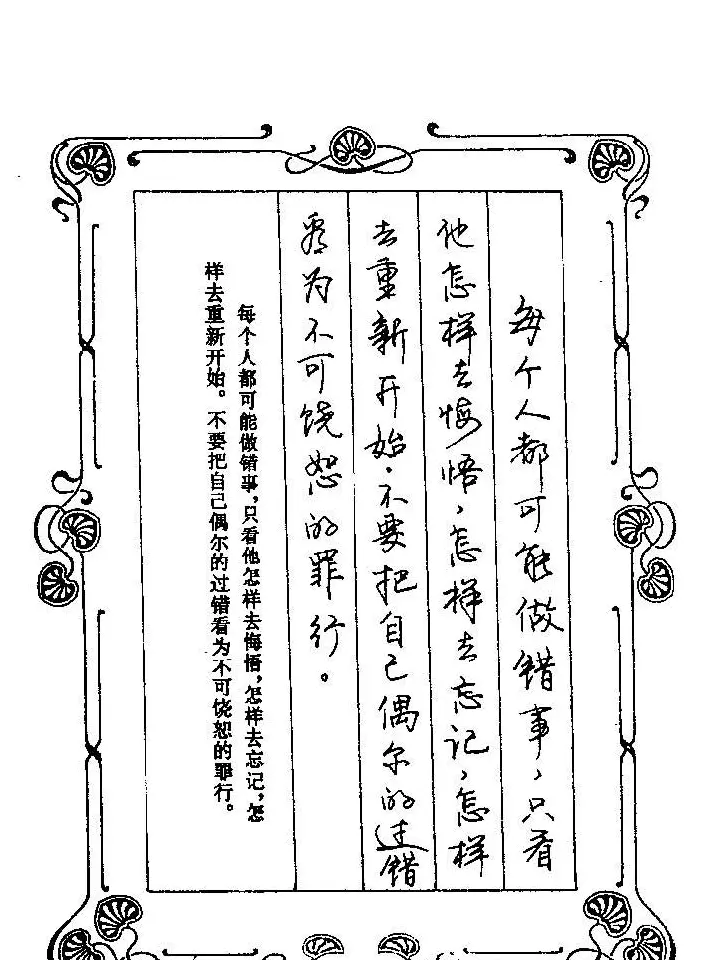 每个人都可能做错事，只看
他怎样去悔悟，怎样去忘记，怎样
去重新开始。不要把自己偶尔的过错
看为不可饶恕的罪行。
每个人都可能做错事，只看他怎样去悔悟，怎样去忘记，怎
样去重新开始。不要把自己偶尔的过错看为不可饶恕的罪行。